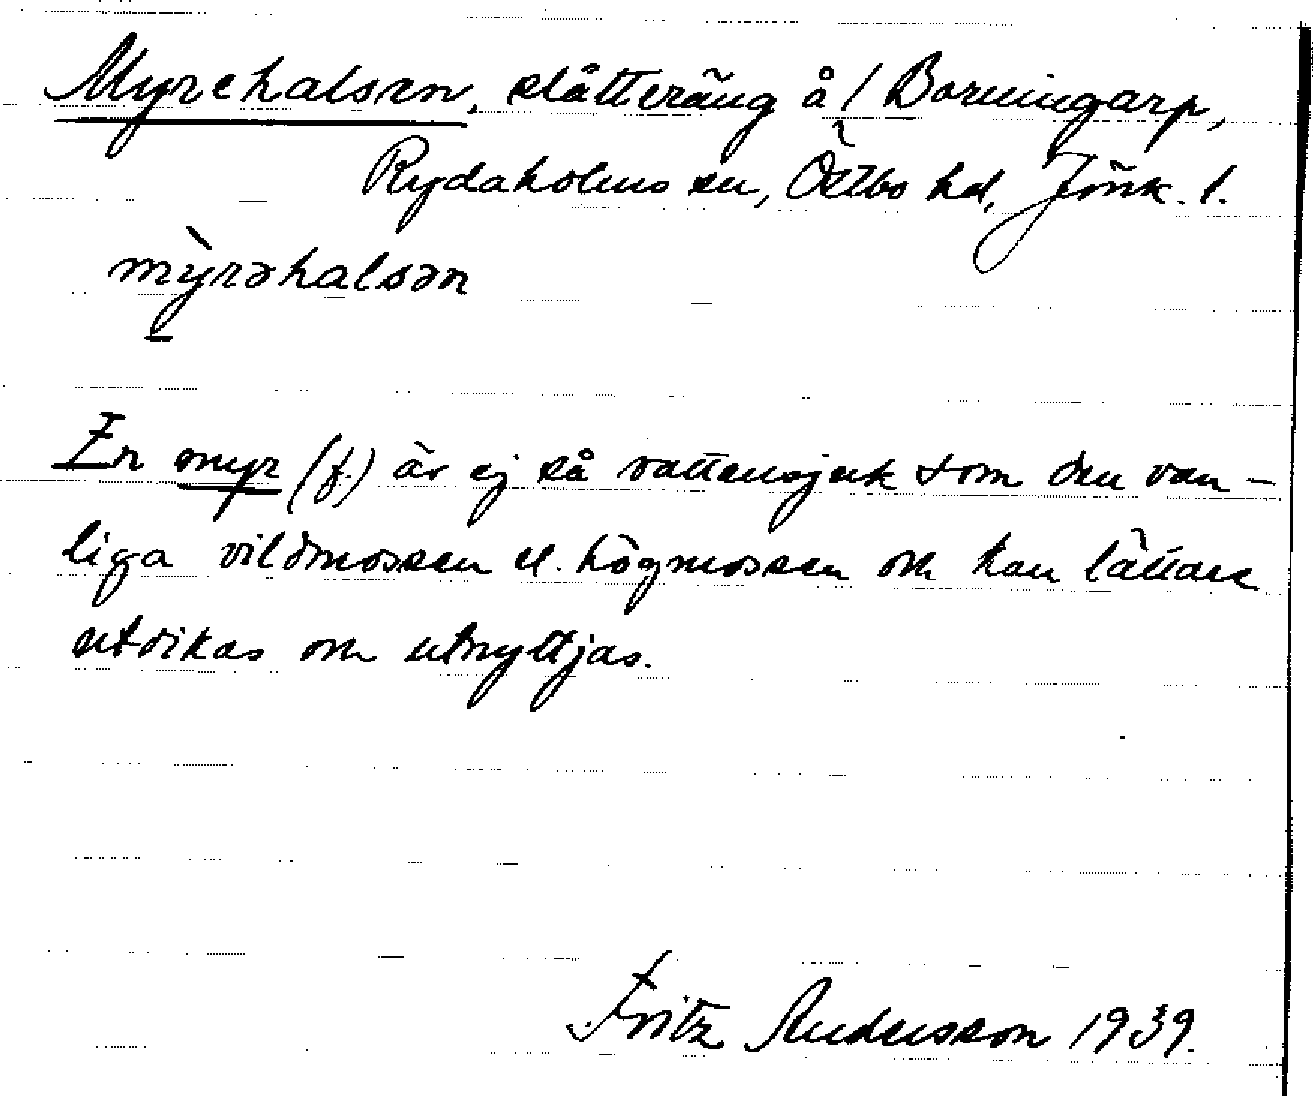 Myrehalsen, slåtteräng å / Borningarp,
Rydaholms sn, Östbo hd, Jönk. l.
mỳrəhalsən
En myr (f.) är ej så vattensjuk som den van-
liga vildmossen el. högmossen och kan lättare
utdikas och utnyttjas.
Fritz Andersson 1939.